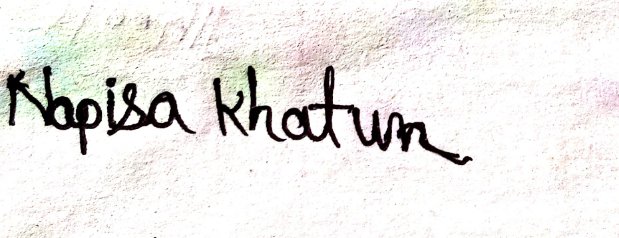 Napisa Khatun